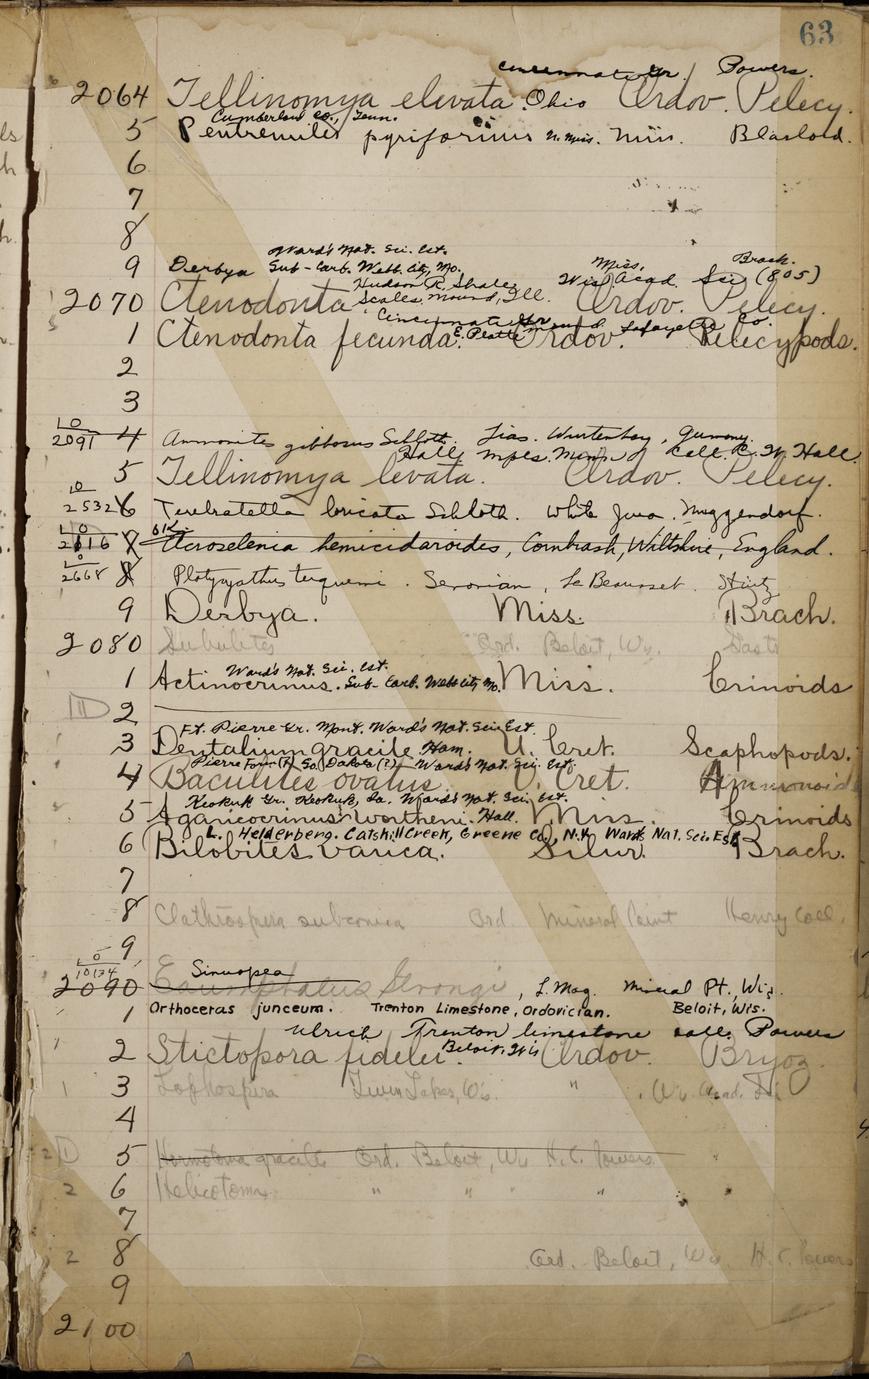 63
Cincinnati Gr. Powers.
2064 Tellinomya elevata. Ohio Ordov. Pelecy.
Cumberland Co., Tenn.
5 Pentremites pyriformis Miss. Blastoid.
6
7
8
Ward's Nat. Sci. Est. Miss. Brach.
9 Derbya Sub-Carb. Webb City, Mo. Wis Acad. Sci (805)
Hudson R. Shale
2070 Ctenodonta Scales Mound, Ill. Ordov. Pelecy.
Cincinnati Gr Mound Lafayette Co.
1 Ctenodonta fecunda. E. Platte Ordov. Pelecypods.
2
3
10
2091 4 Ammonites gibbosus Schloth. Lias. Wurtenbog, Gumony.
Hall Mpls. Minn. Coll. C. W. Hall
5 Tellinomya levata. Ordov. Pelecy.
10
25326 Terebratella loricata Schloth. White Jura. Muggendorf.
10 OK
2616 7 Acroselenia hemicidaroides, Cornbrash, Wiltshire, England.
10
2668 8 Senonian, Le Beausset.
9 Derbya. Miss. Brach.
2080 Subulites Ord. Beloit, Wis. Gast
Ward's Nat. Sci. Est.
1 Actinocrinus. Sub-Carb. Webb City Mo. Miss. Crinoids
2
Ft. Pierre Gr. Mont. Ward's Nat. Sci Est.
3 Dentalium gracile Ham. U. Cret. Scaphopods.
Pierre Form (?) So. Dakota (?) - Ward's Nat. Sci. Est.
4 Baculites ovatus. U. Cret. Ammonoids
Keokuk Gr. Keokuk, Ia. Ward's Nat. Sci. Est.
5 Agaricocrinus wortheni. Hall. Miss. Crinoids
L. Helderberg. Catskill Creek, Greene Co, N.Y. Wards Nat. Sci. Est
6 Bilobites varica. Silur. Brach.
7
8 Clathrospera subconica Ord. Mineral Point Henry Coll.
9
10
10134 Sinuopea
2090 Strongi, L. Mag. Mineral Pt., Wis.
1 Orthoceras junceum. Trenton Limestone, Ordovician. Beloit, Wis.
Ulrich Trenton limestone coll. Powers
2 Stictopora fidelei. Beloit, Wis Ordov. Bryoz
1 3 Lophospira Twin Lakes, Wis. " Wis. Acad. Sci
4
5 Hormotoma gracilis Ord. Beloit, Wis H. C. Powers
2 6 Helicotoma " " " " "
7
2 8 Ord. Beloit, Wis H. C. Powers
9
2100